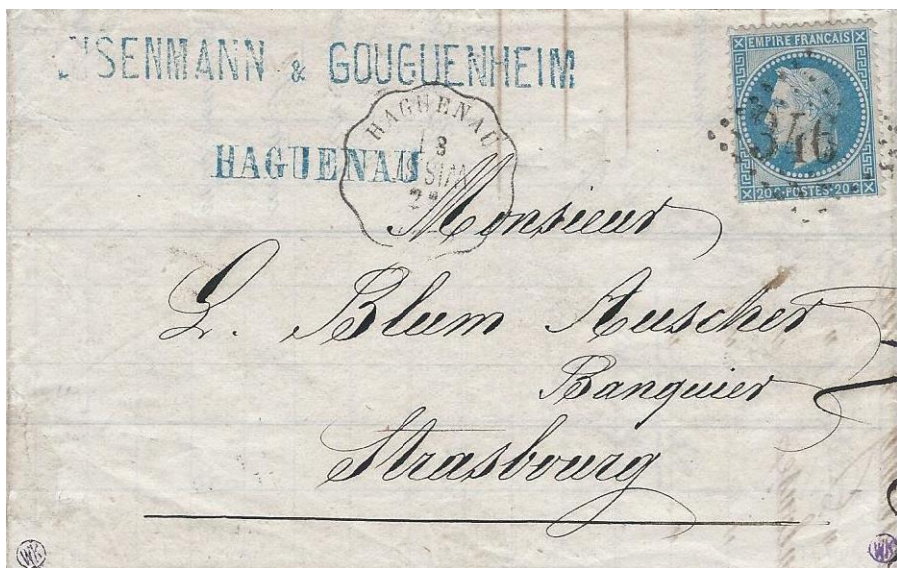 & GOUGUENHEIM
HAGUENAU
HAGUENAU
EMPIRE FRANÇAIS
346
20c POSTES 20c
Monsieur
L. Blum Auscher
Banquier
Strasbourg
WK
WK